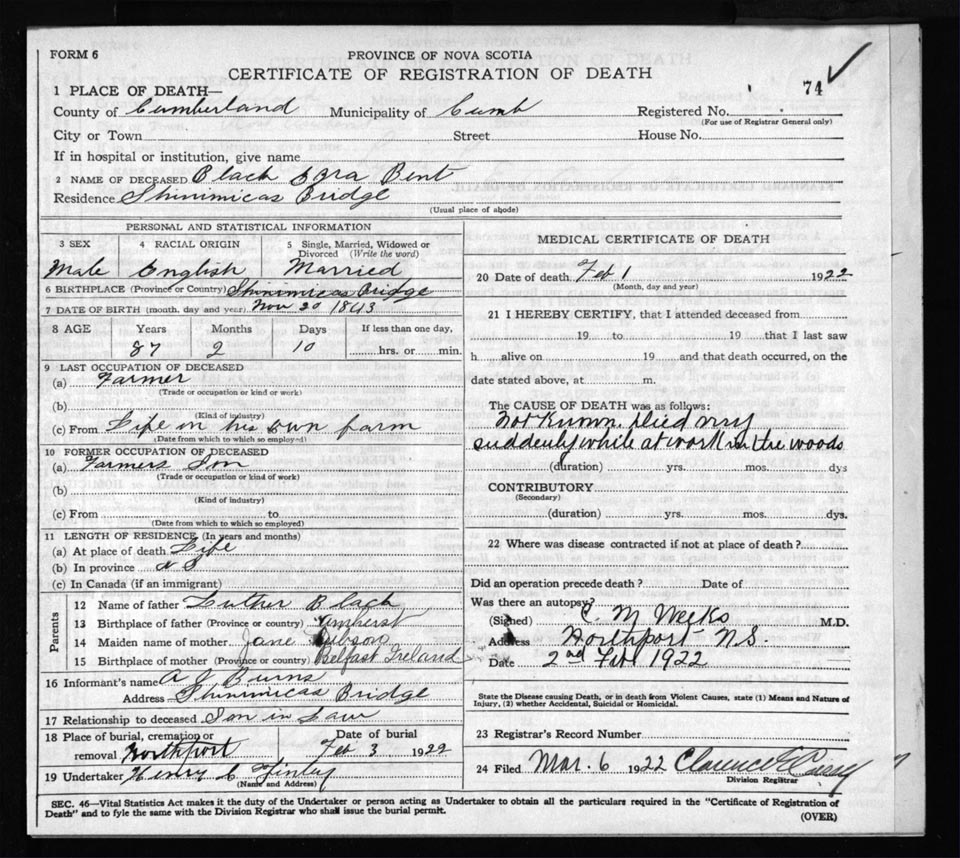 FORM 6
PROVINCE OF NOVA SCOTIA
CERTIFICATE OF REGISTRATION OF DEATH
74 ✓
1 PLACE OF DEATH—
County of Cumberland Municipality of Cumb Registered No.
(For use of Registrar General only)
City or Town Street House No.
If in hospital or institution, give name
2 NAME OF DECEASED Black Ezra Bent
Residence Shinimicas Bridge
(Usual place of abode)
PERSONAL AND STATISTICAL INFORMATION
3 SEX 4 RACIAL ORIGIN 5 Single, Married, Widowed or Divorced (Write the word)
Male English Married
6 BIRTHPLACE (Province or Country) Shinimicas Bridge
7 DATE OF BIRTH (month, day and year) Nov 20 1843
8 AGE Years Months Days If less than one day,
87 2 10 hrs. or min.
9 LAST OCCUPATION OF DECEASED
(a) Farmer
(Trade or occupation or kind or work)
(b)
(Kind of industry)
(c) From Life in his own farm
(Date from which to which so employed)
10 FORMER OCCUPATION OF DECEASED
(a) Farmers Son
(Trade or occupation or kind of work)
(b)
(Kind of industry)
(c) From to
(Date from which to which so employed)
11 LENGTH OF RESIDENCE (In years and months)
(a) At place of death Life
(b) In province N S
(c) In Canada (if an immigrant)
Parents
12 Name of father Luther Black
13 Birthplace of father (Province or country) Amherst
14 Maiden name of mother Jane
15 Birthplace of mother (Province or country) Belfast Ireland
16 Informant's name A J Burns
Address Shinimicas Bridge
17 Relationship to deceased Son in Law
18 Place of burial, cremation or removal Northport Date of burial Feb 3 1922
19 Undertaker Henry C Finley
(Name and Address)
MEDICAL CERTIFICATE OF DEATH
20 Date of death Feb 1 1922
(Month, day and year)
21 I HEREBY CERTIFY, that I attended deceased from
19 to 19 that I last saw
h alive on 19 and that death occurred, on the
date stated above, at m.
The CAUSE OF DEATH was as follows:
Not Known. Died very
suddenly while at work in the woods
(duration) yrs. mos. dys
CONTRIBUTORY
(Secondary)
(duration) yrs. mos. dys.
22 Where was disease contracted if not at place of death?
Did an operation precede death? Date of
Was there an autopsy?
(Signed) C. M Weeks M.D.
Address Northport N.S.
Date 2nd Feb 1922
State the Disease causing Death, or in death from Violent Causes, state (1) Means and Nature of
Injury, (2) whether Accidental, Suicidal or Homicidal.
23 Registrar's Record Number
24 Filed Mar. 6 1922 Clarence E Casey
Division Registrar
SEC. 46—Vital Statistics Act makes it the duty of the Undertaker or person acting as Undertaker to obtain all the particulars required in the "Certificate of Registration of
Death" and to fyle the same with the Division Registrar who shall issue the burial permit.
(OVER)